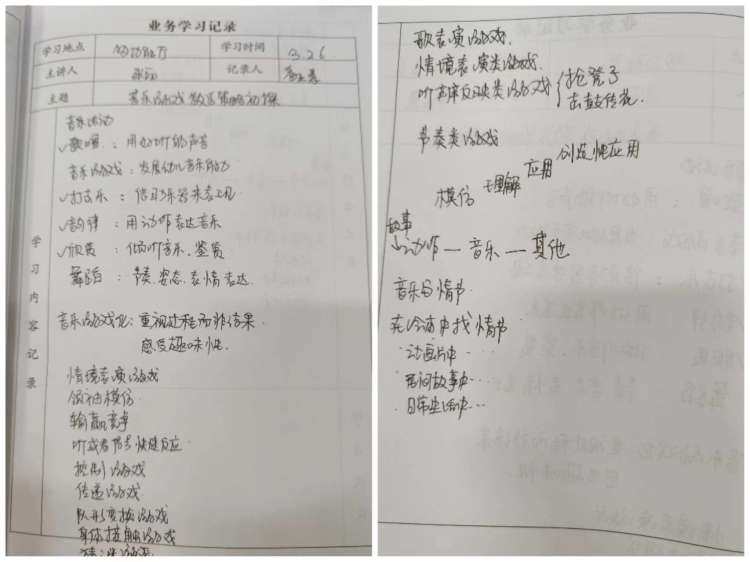 业务学习记录
学习地点 学习时间 3.26
主讲人 记录人
主题 音乐游戏教学策略初探
学习内容记录
音乐活动
✓歌唱：用好听的声音
音乐游戏：发展幼儿音乐能力
✓打击乐：借助乐器来表现
✓韵律：用动作表达音乐
✓欣赏：倾听音乐、鉴赏
舞蹈：节奏、姿态、表情表达
音乐游戏化：重视过程而非结果
感受趣味性.
情境表演游戏
领袖模仿
输赢竞争
听或看信号快速反应
控制游戏
传递游戏
队形变换游戏
身体接触游戏
歌表演游戏.
情境表演类游戏.
听辨反映类游戏 抢凳子
击鼓传花.
节奏类游戏
模仿 理解 应用 创造性应用
故事
动作 — 音乐 — 其他
音乐与情节
在绘本中找情节
动画片中…
民间故事中…
日常生活中…